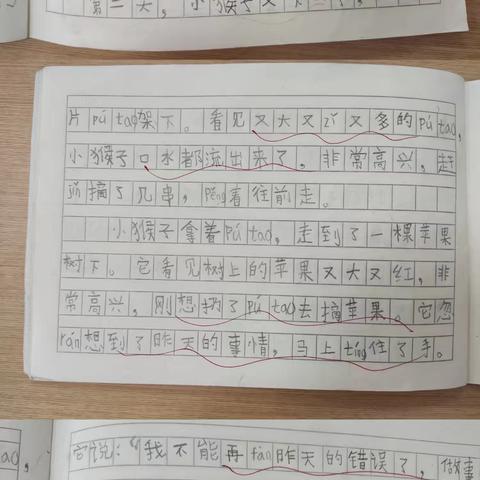 第二天，小猴子又下
片pú tao架下。看见又大又zǐ又多的pú tao，
小猴子口水都流出来了。非常高兴，赶
jǐn摘了几串，pěng着往前走。
小猴子拿着pú tao，走到了一棵苹果
树下。它看见树上的苹果又大又红，非
常高兴，刚想扔了pú tao去摘苹果。它忽
rán想到了昨天的事情，马上tíng住了手。
它说：“我不能再fàn昨天的错误了，做事